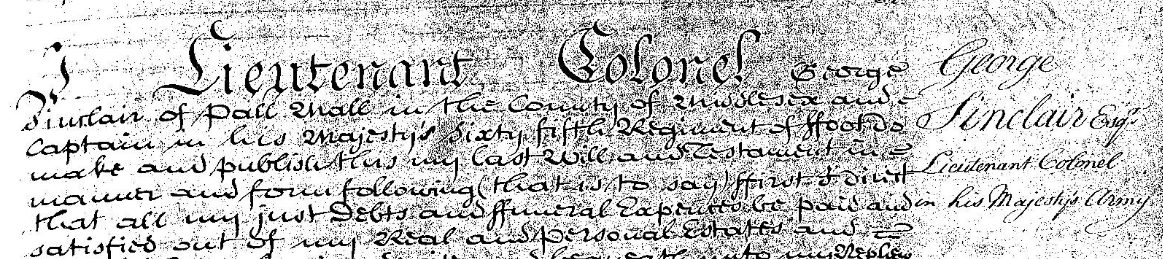 I Lieutenant Colonel George
Sinclair of Pall Mall in the County of Middlesex and
Captain in his Majesty's Sixty fifth Regiment of ffoot do
make and publish this my last Will and Testament in
manner and form following (that is to say) ffirst I direct
that all my just Debts and ffuneral Expences be paid and
satisfied out of my Real and Personal Estates and
unto my Nephew
George
Sinclair Esqr.
Lieutenant Colonel
in his Majesty's Army